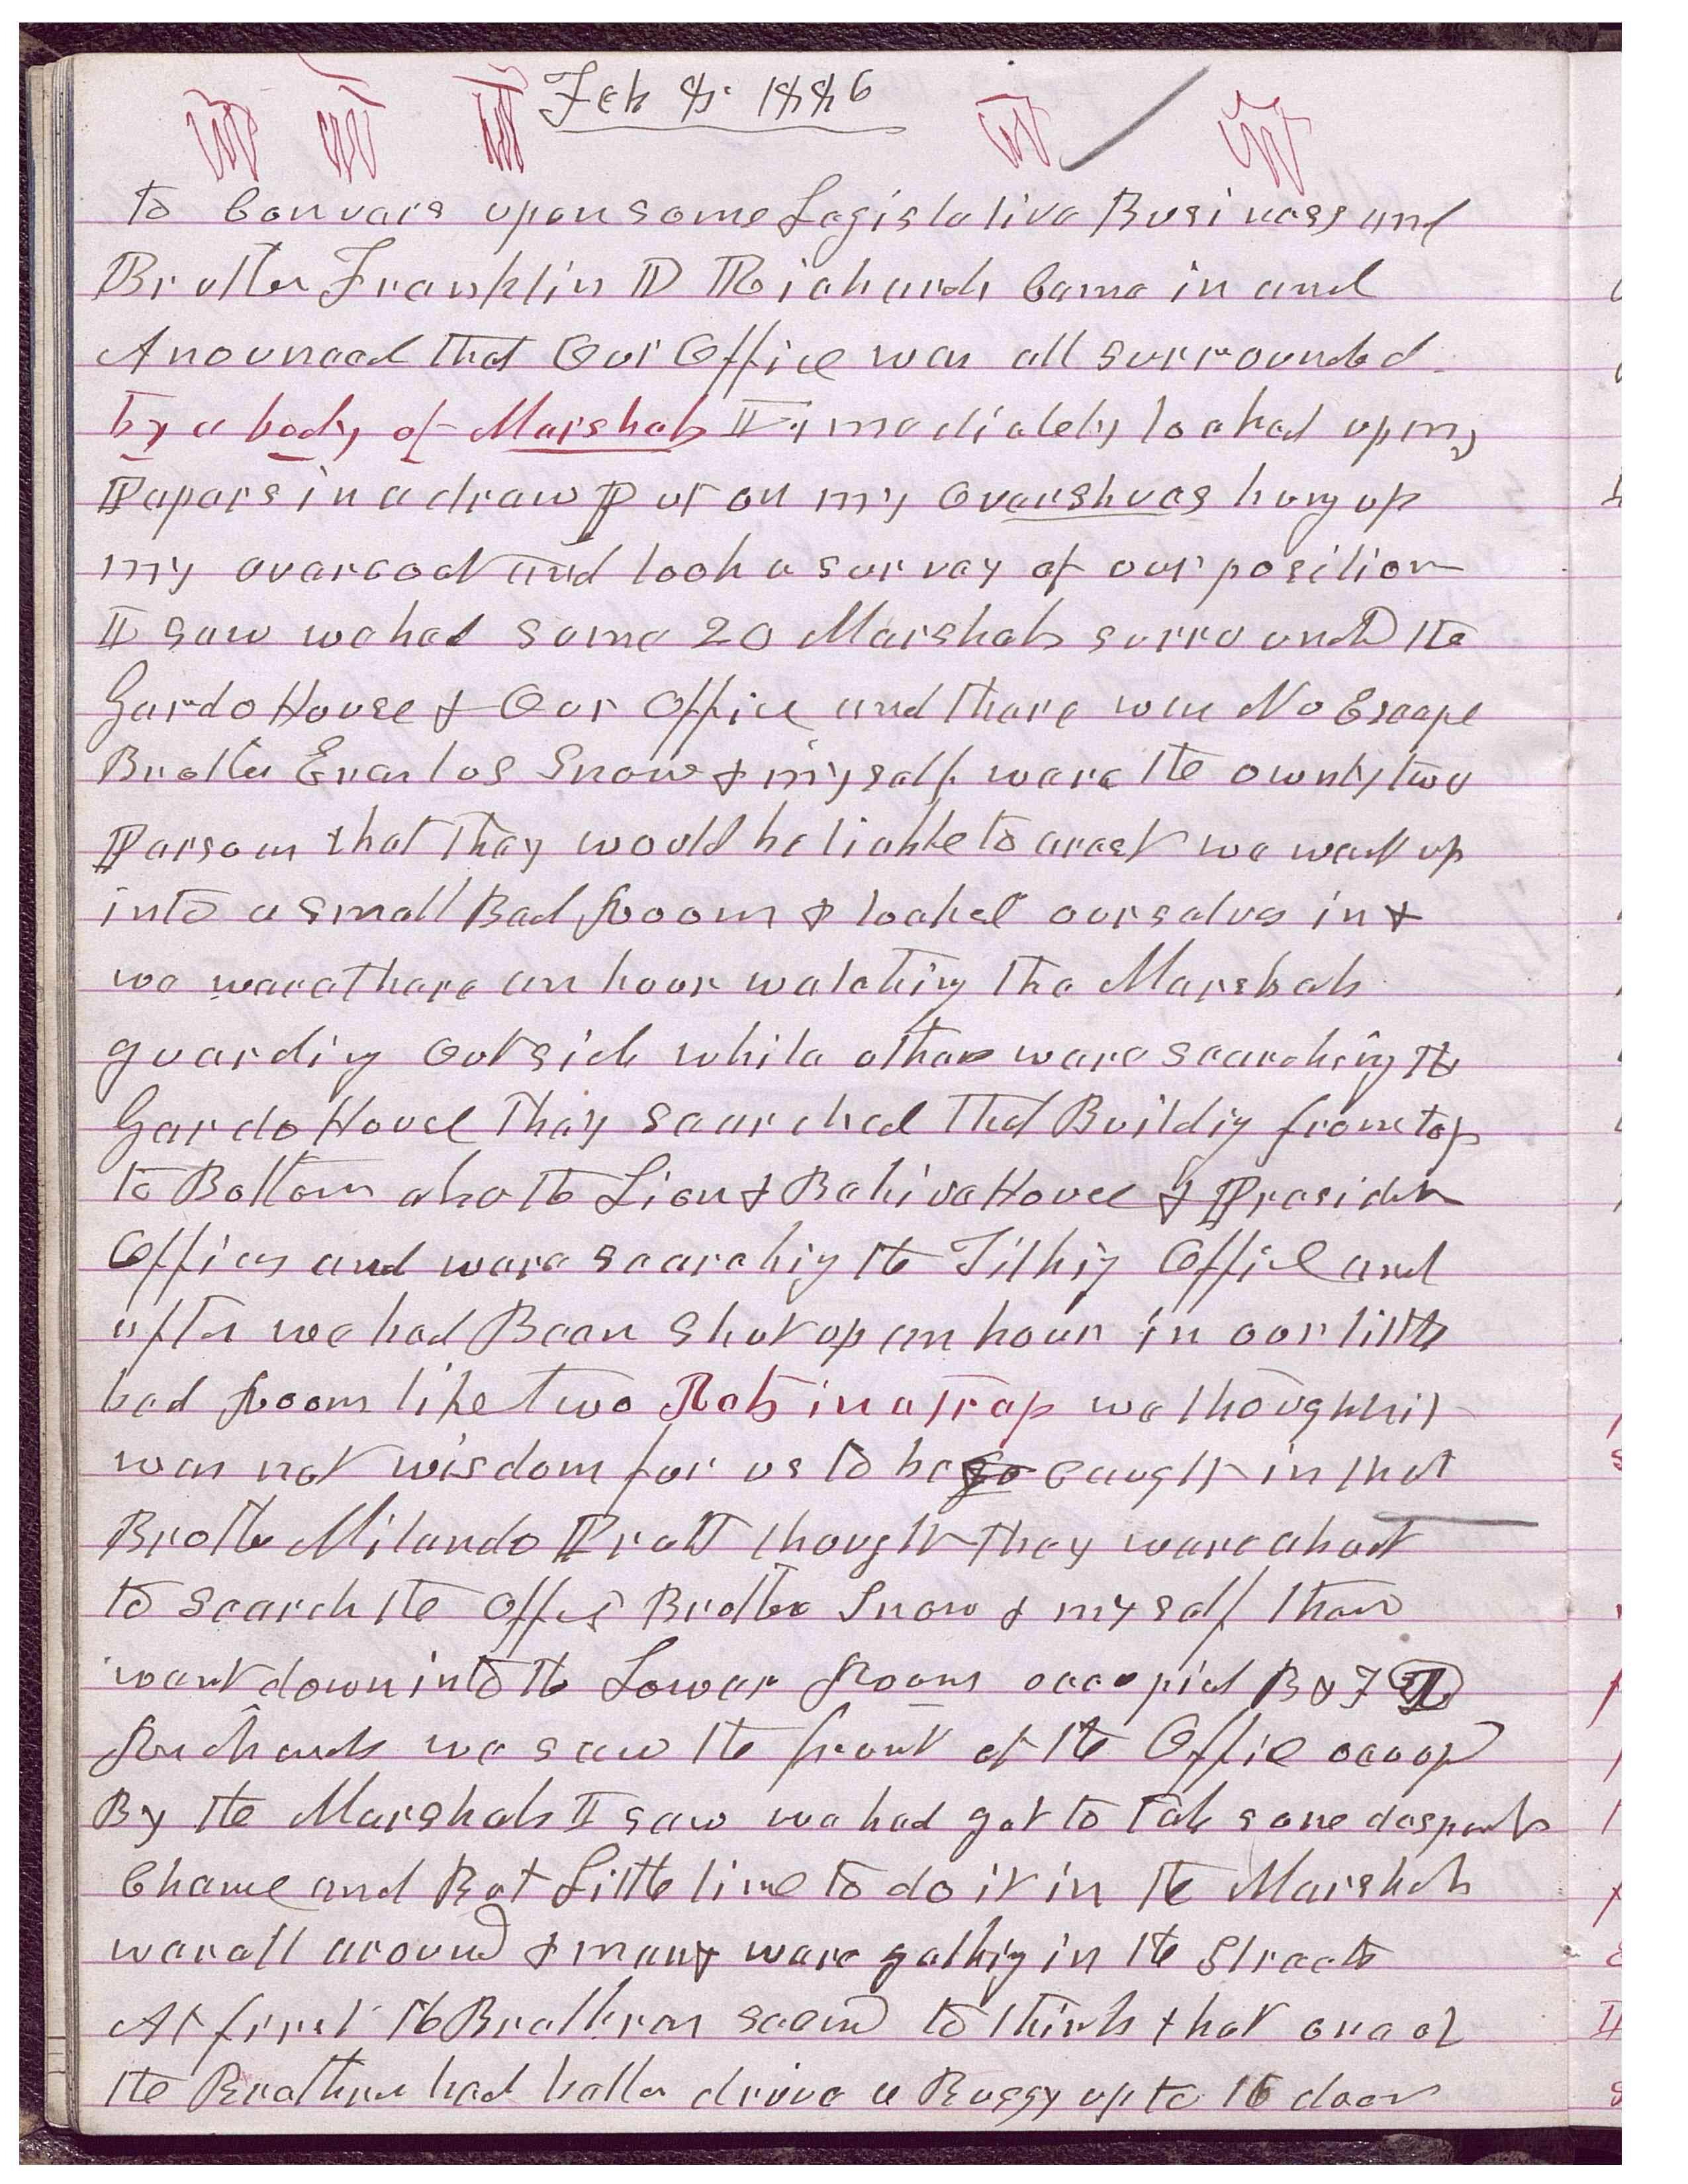 Feb 8. 1886
to Convars upon some Legislative Business and
Brother Franklin D Richards Came in and
Anounced that Our Office was all surrounded
by a body of Marshals I imediately locked up my
Papers in a draw Put on my overshoes hung up
my overcoat and took a survey of our position
I saw we had some 20 Marshals surround the
Gardo House & Our Office and there was No Escape
Brother Erastus Snow & myself were the ownly two
Persons that they would be liable to arest we went up
into a small Bed Room & locked ourselves in &
we were there an hour watching the Marshals
guarding outside while others were searching the
Gardo House They searched that Building from top
to Bottom also the Lion & Behive House & Presidets
Offices and were searching the Tithing Office and
after we had Been shut up an hour in our little
bed Room like two Rats in a Trap we thought it
was not wisdom for us to be so caught in that
Brother Milando Pratt thought they were about
to search the Office Brother Snow & myself then
went down into the Lower Rooms occupied By F D
Richards we saw the front of the Office occup
By the Marshals I saw we had got to take some desperate
Chance and But Little time to do it in the Marshals
were all around & many were gathing in the Streets
At first the Brethren seemed to think that one of
the Brethren had better drive a Buggy up to the door